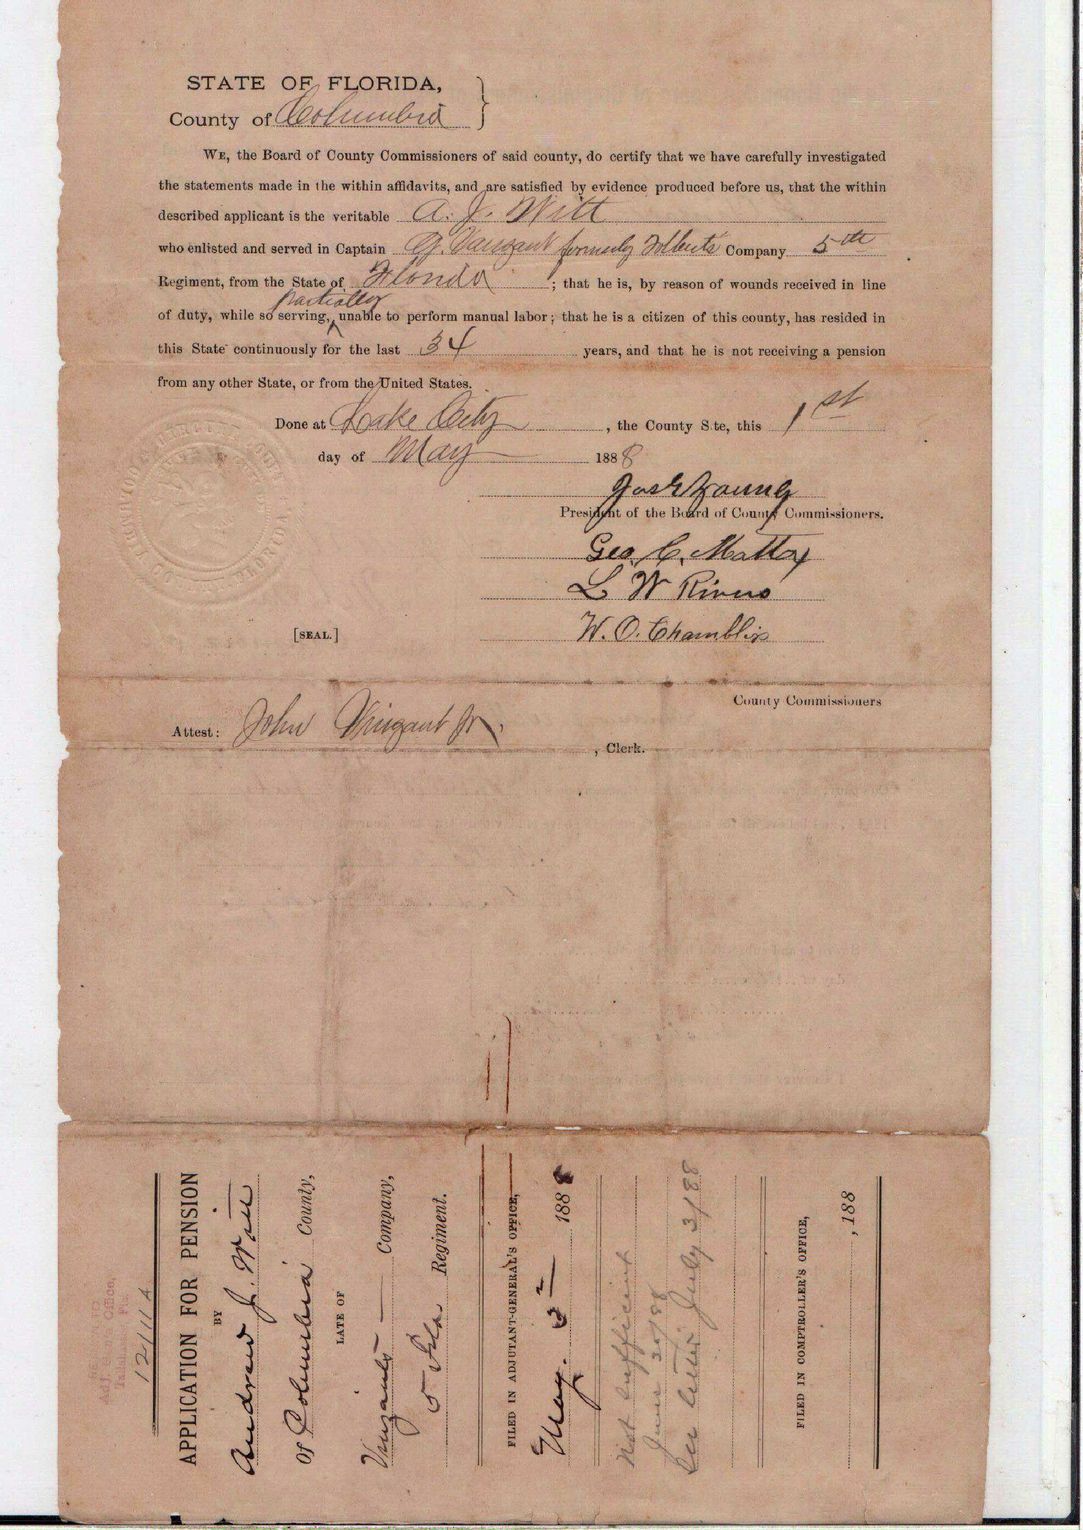 STATE OF FLORIDA,
County of Columbia
WE, the Board of County Commissioners of said county, do certify that we have carefully investigated
the statements made in the within affidavits, and are satisfied by evidence produced before us, that the within
described applicant is the veritable A. J. Witt
who enlisted and served in Captain G. Vanzant formerly Company 5th
Regiment, from the State of Florida ; that he is, by reason of wounds received in line
partially
of duty, while so serving, unable to perform manual labor; that he is a citizen of this county, has resided in
this State continuously for the last 34 years, and that he is not receiving a pension
from any other State, or from the United States.
Done at Lake City , the County Site, this 1st
day of May 1888
President of the Board of County Commissioners.
Geo. C. Mattox
L W Rivers
W. O. Chamblin
[SEAL.]
County Commissioners
Attest: John Vinzant Jr. , Clerk.
12/11 A
APPLICATION FOR PENSION
BY
Andrew J. Witt
Of Columbia County,
LATE OF
Vinzants Company,
5 Fla Regiment.
FILED IN ADJUTANT-GENERAL'S OFFICE,
May. 1888
Not sufficient
June 88
See letter July 3/88
FILED IN COMPTROLLER'S OFFICE,
, 188